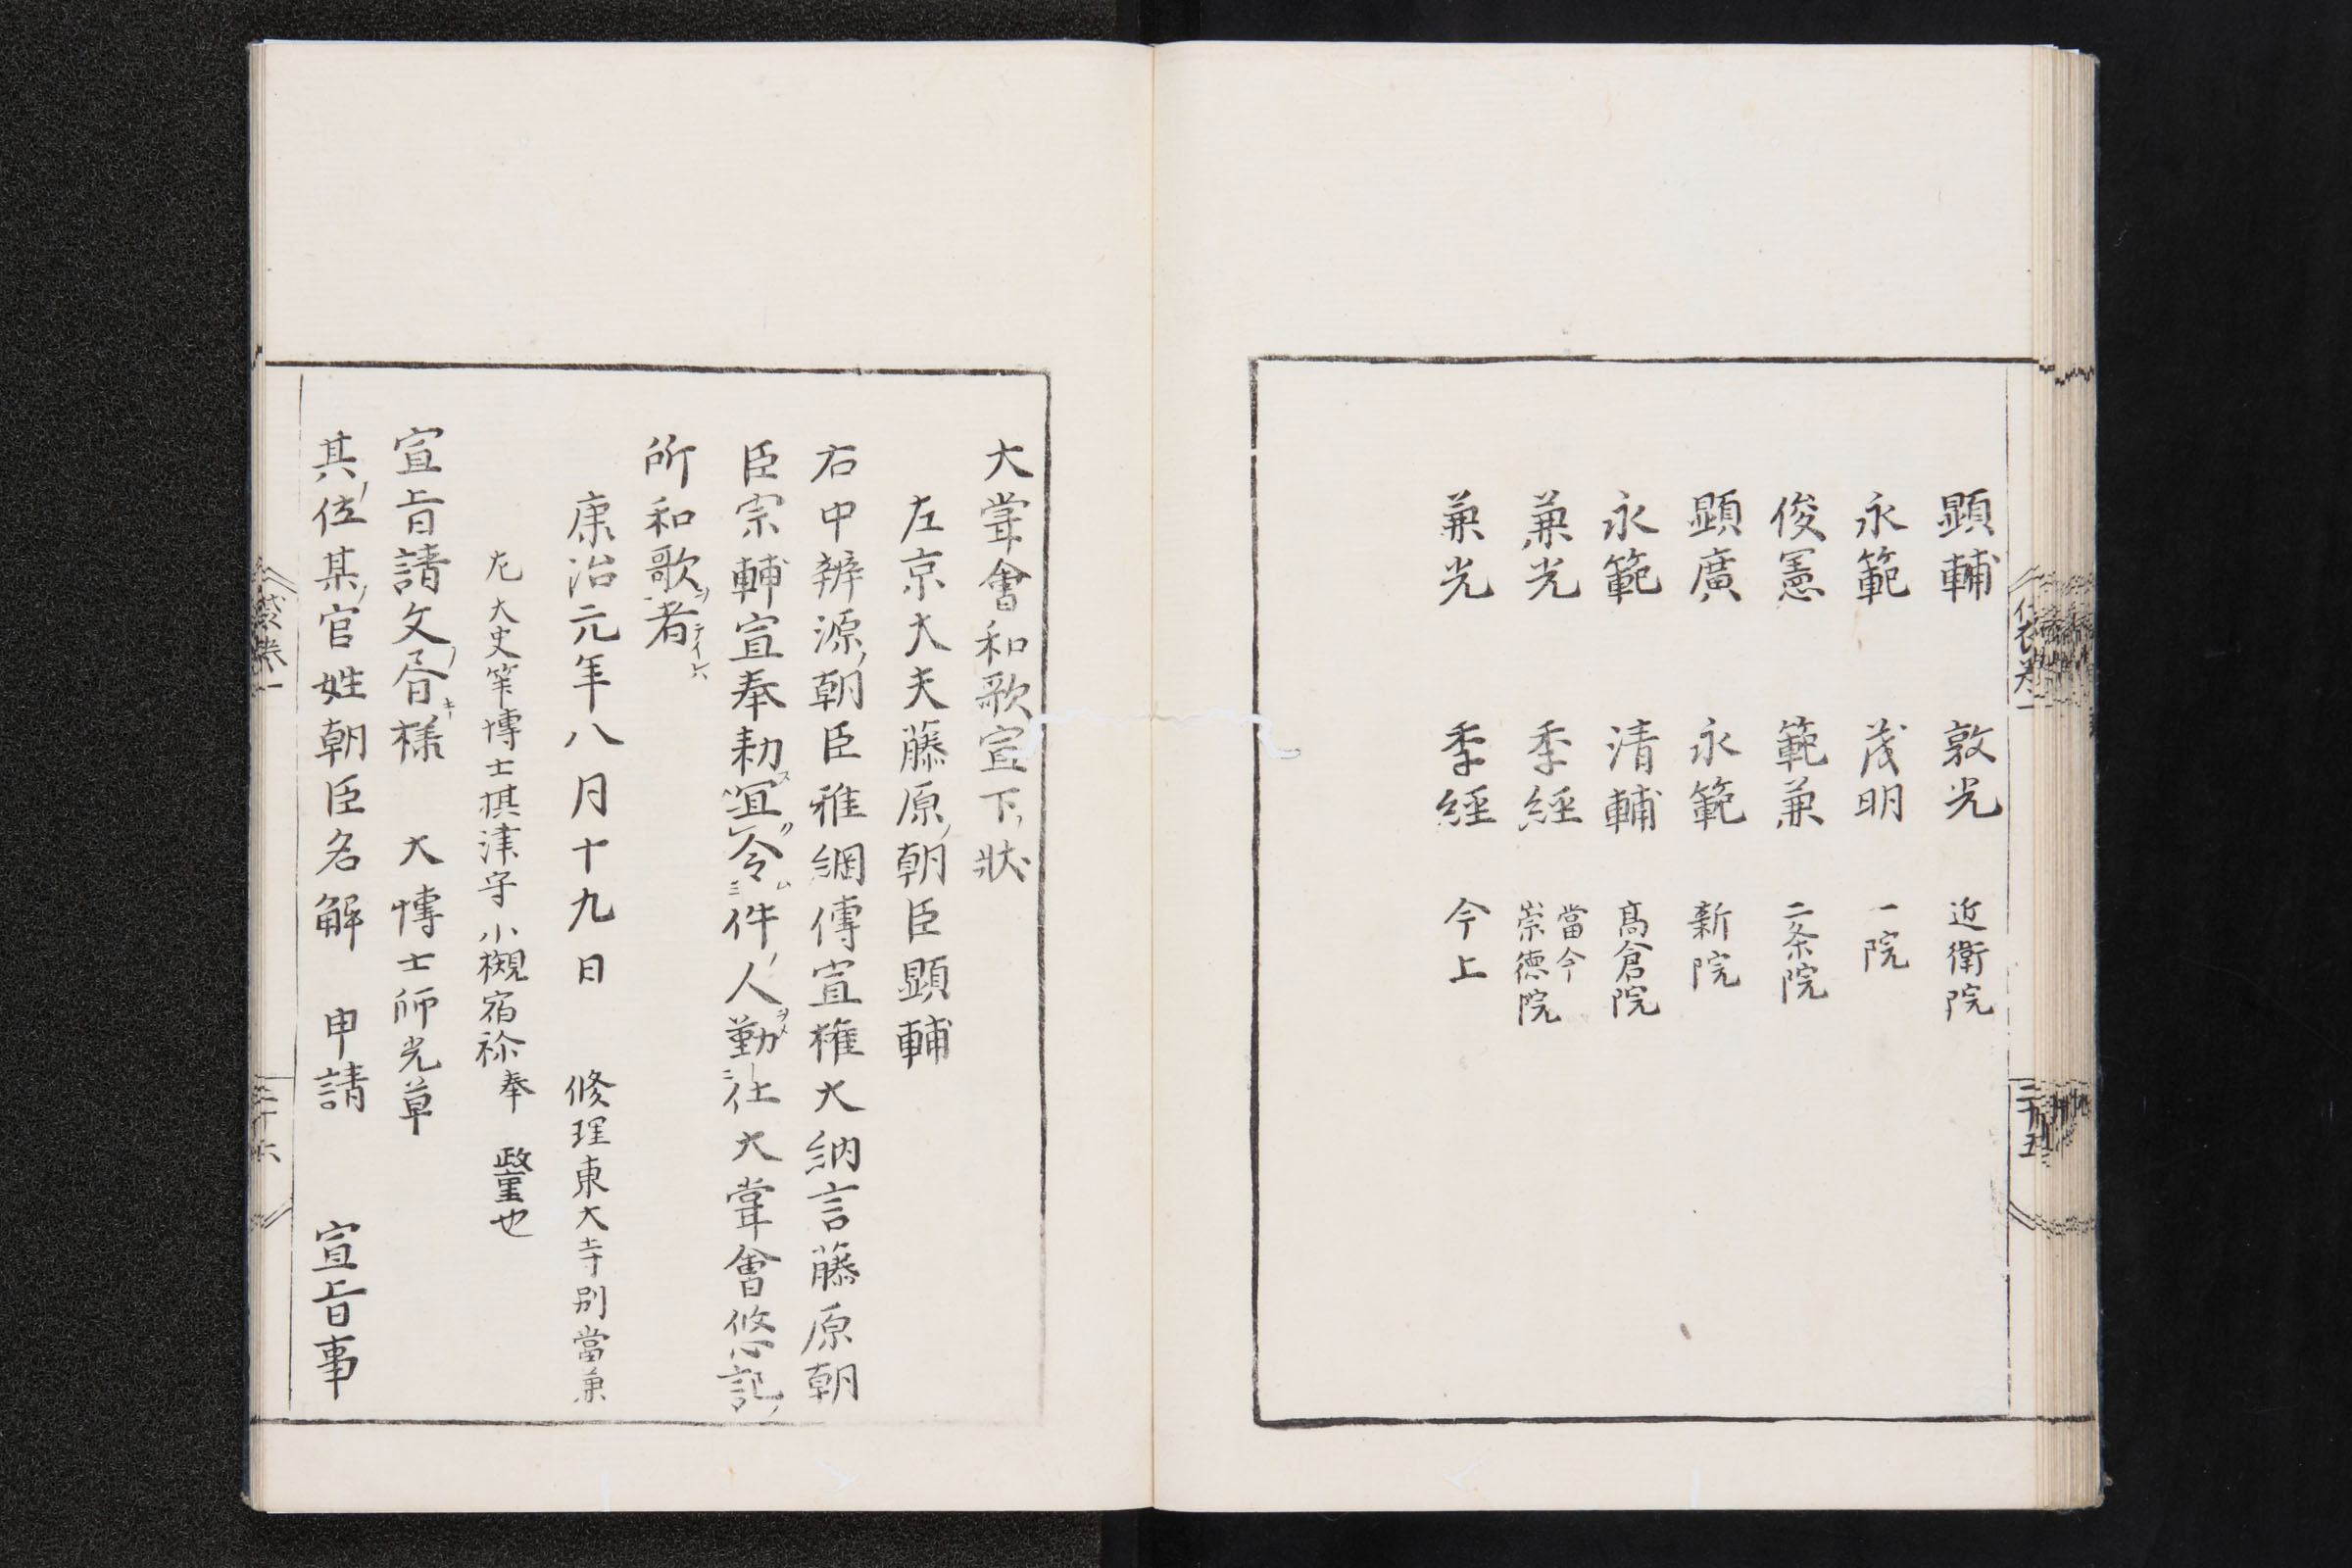 顕輔　敦光　近衛院
永範　茂明　一院
俊憲　範兼　二条院
顕廣　永範　新院
永範　清輔　髙倉院
兼光　季経　當今
崇德院
兼光　季経　今上
二十五
大甞會和歌宣下ノ狀
左京大夫藤原ノ朝臣顕輔
右中辨源ノ朝臣雅綱傳宣権大納言藤原朝
臣宗輔宣奉勅宜令件ノ人勤仕大甞會悠記ノ
所和歌者
康治元年八月十九日　修理東大寺別當兼
左大史筭博士摂津守小槻宿祢奉　政重也
宣旨請文ノ昏様　大博士師光草
其ノ位某ノ官姓朝臣名解　申請　宣旨事
二十六